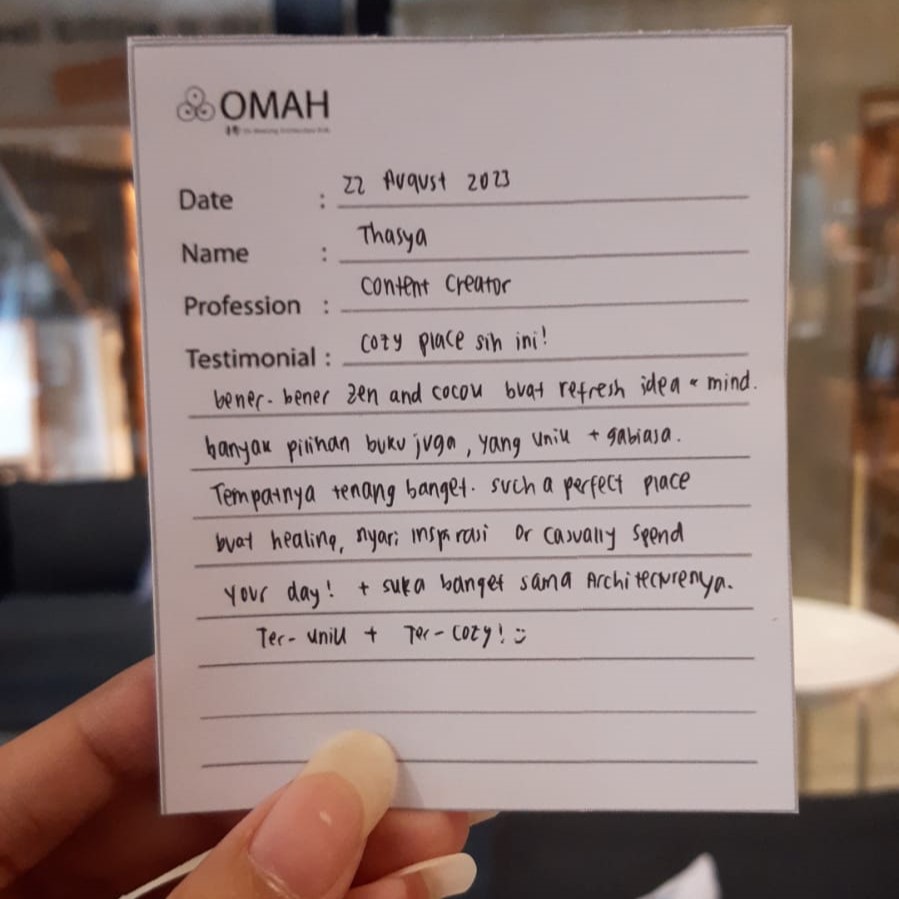 OMAH
Date : 22 August 2023
Name : Thasya
Profession : Content Creator
Testimonial : Cozy place sih ini!
bener-bener zen and cocok buat refresh idea & mind.
banyak pilihan buku juga, yang unik + gabiasa.
Tempatnya tenang banget. such a perfect place
buat healing, nyari inspirasi or casually spend
your day! + suka banget sama Architecturenya.
Ter-unik + Ter-cozy! :)